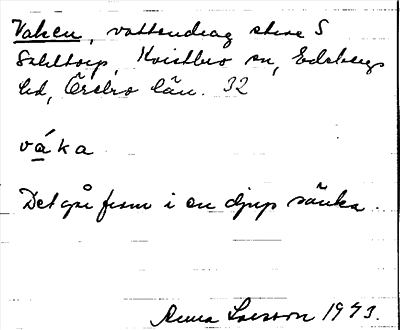 Vaken, vattendrag stxe S
Sahltorp, Kvistbro sn, Edsbergs
hd, Örebro län. 32
váka
Det går fram i en djup sänka.
Anna Larsson 1973.